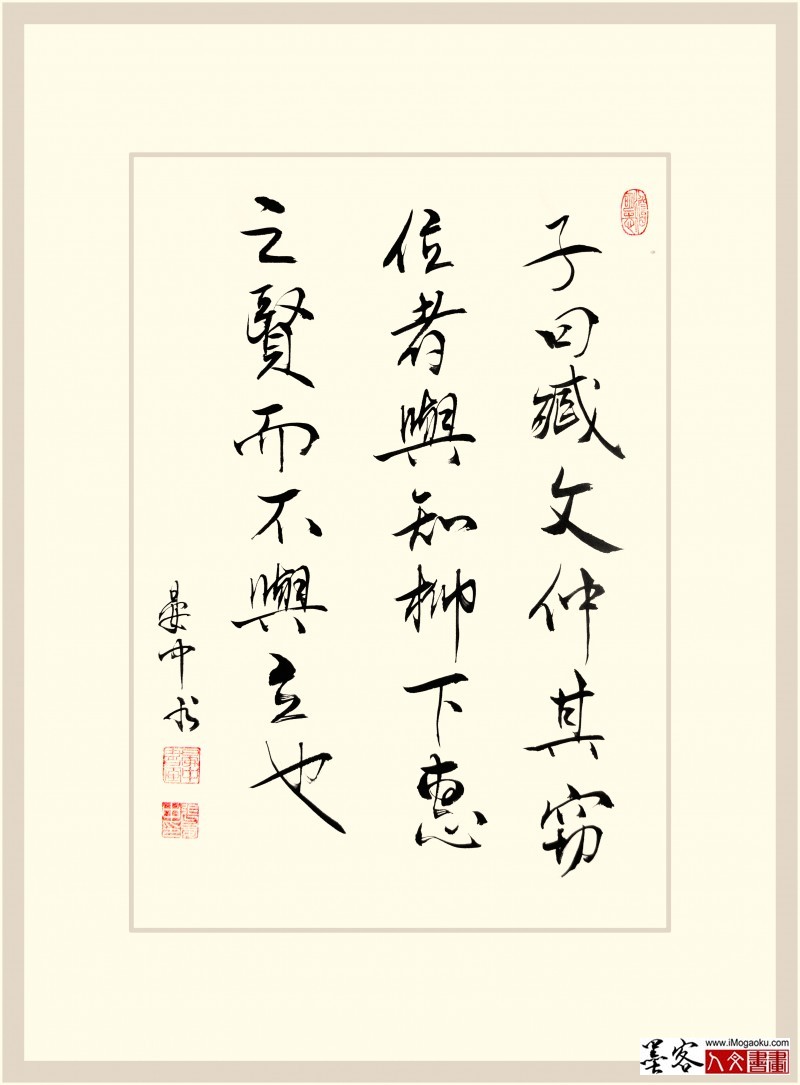 子曰臧文仲其窃
位者與知柳下惠
之賢而不與立也
晏中书
墨客
www.iMogaoku.com
人文書畫